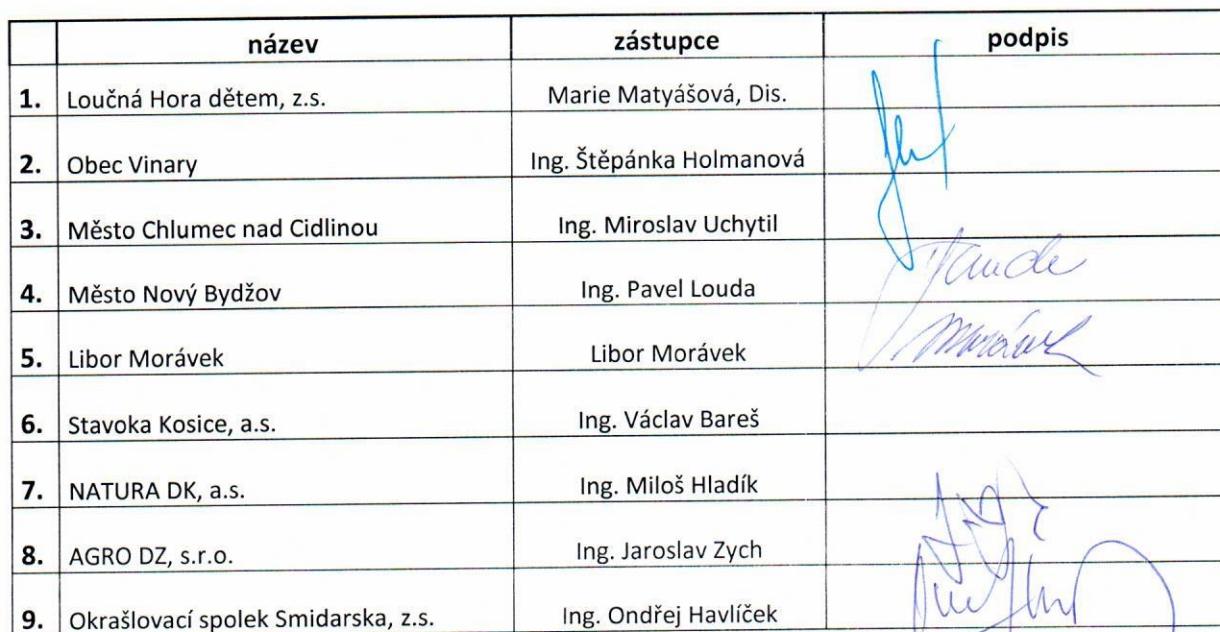 název zástupce podpis
1. Loučná Hora dětem, z.s. Marie Matyášová, Dis.
2. Obec Vinary Ing. Štěpánka Holmanová
3. Město Chlumec nad Cidlinou Ing. Miroslav Uchytil
4. Město Nový Bydžov Ing. Pavel Louda
5. Libor Morávek Libor Morávek Morávek
6. Stavoka Kosice, a.s. Ing. Václav Bareš
7. NATURA DK, a.s. Ing. Miloš Hladík
8. AGRO DZ, s.r.o. Ing. Jaroslav Zych
9. Okrašlovací spolek Smidarska, z.s. Ing. Ondřej Havlíček